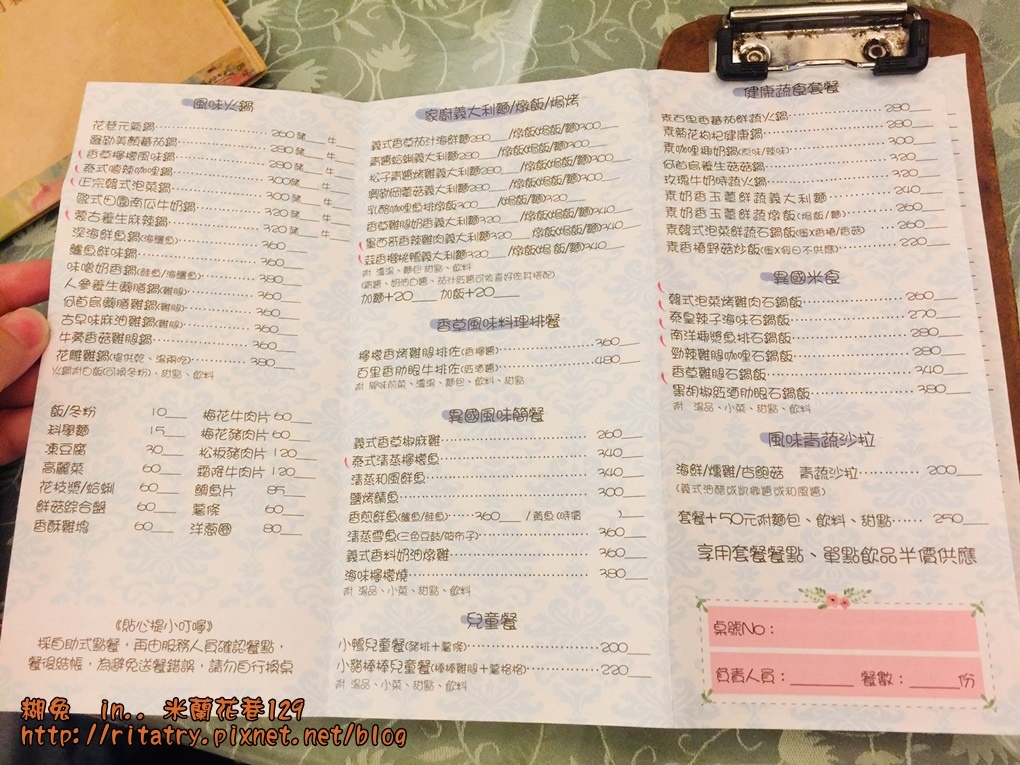 風味火鍋
花巷元氣鍋 260 豬 牛
羅勒美顏蕃茄鍋 280 豬 牛
香草檸檬風味鍋 280 豬 牛
泰式酸辣咖哩鍋 300 豬 牛
正宗韓式泡菜鍋 300 豬 牛
歐式田園南瓜牛奶鍋 320 豬 牛
蒙古養生麻辣鍋 320 豬 牛
深海鮮魚鍋(海鱺魚) 360
鱸魚鮮味鍋 360
味噌奶香鍋(鮭魚/海鱺魚) 380
人參養生藥膳鍋(雞腿) 360
何首烏藥膳雞鍋(雞腿) 360
古早味麻油雞鍋(雞腿) 360
牛蒡香菇雞腿鍋 360
花雕雞鍋(提供乾、湯兩吃) 380
火鍋附白飯(可換冬粉)、甜點、飲料
飯/冬粉 10 梅花牛肉片 60
科學麵 15 梅花豬肉片 60
凍豆腐 30 松板豬肉片 120
高麗菜 60 霜降牛肉片 120
花枝漿/蛤蜊 60 鯛魚片 85
鮮菇綜合盤 60 薯條 60
香酥雞塊 60 洋蔥圈 80
《貼心提小叮嚀》
採自助式點餐，再由服務人員確認餐點，
餐後結帳，為避免送餐錯誤，請勿自行換桌
家廚義大利麵/燉飯/焗烤
義式香草茄汁海鮮麵280 /燉飯(焗飯/麵)300
青醬蛤蜊義大利麵280 /燉飯(焗飯/麵)300
松子青醬烤雞義大利麵280 /燉飯(焗飯/麵)300
奧勒岡蘑菇義大利麵280 /燉飯(焗飯/麵)300
乳酪咖哩魚排燉飯300 /燉飯(焗飯/麵)300
香草雞腿奶香義大利麵320 /燉飯(焗飯/麵)340
墨西哥香辣雞肉義大利麵320 /燉飯(焗飯/麵)340
蒜香櫻桃鴨義大利麵320 /燉飯(焗飯/麵)340
附 濃湯、麵包 甜點、飲料
(青醬、奶油白醬、茄汁紅醬可依喜好佐料搭配)
加麵+20 加飯+20
香草風味料理排餐
檸檬香烤雞腿排佐(香檸醬) 360
百里香肋眼牛排佐(紅酒醬) 480
附 風味前菜、濃湯、麵包、飲料、甜點
異國風味簡餐
義式香草椒麻雞 260
泰式清蒸檸檬魚 340
清蒸和風鮮魚 340
鹽烤鯖魚 300
香煎鮮魚(鱸魚/鮭魚) 360 /黃魚(時價 )
清蒸雪魚(三色豆豉/破布子) 360
義式香料奶油燉雞 360
海味檸檬燒 380
附 湯品、小菜、甜點、飲料
兒童餐
小鴨兒童餐(豬排+薯條) 200
小豬棒棒兒童餐(棒棒雞腿+薯格格) 220
附 湯品、小菜、甜點、飲料
健康蔬食套餐
素百里香蕃茄鮮蔬火鍋 280
素菊花枸杞健康鍋 280
素咖哩椰奶鍋(原味/辣味) 300
何首烏養生菇菇鍋 320
玫瑰牛奶時蔬火鍋 320
素奶香玉薑鮮蔬義大利麵 240
素奶香玉薑鮮蔬燉飯(焗飯/麵) 260
素韓式泡菜鮮蔬石鍋飯 260
素香椿野菇炒飯 220
異國米食
韓式泡菜烤雞肉石鍋飯 260
秦皇辣子海味石鍋飯 270
南洋椰漿魚排石鍋飯 280
勁辣雞腿咖哩石鍋飯 280
香草雞腿石鍋飯 340
黑胡椒紅酒肋眼石鍋飯 380
附 湯品、小菜、甜點、飲料
風味青蔬沙拉
海鮮/燻雞/杏鮑菇 青蔬沙拉 200
(義式油醋或凱撒醬或和風醬)
套餐+50元附麵包、飲料、甜點 250
享用套餐餐點、單點飲品半價供應
桌號No：
負責人員： 餐數： 份
糊兔 in.. 米蘭花巷129
http://ritatry.pixnet.net/blog